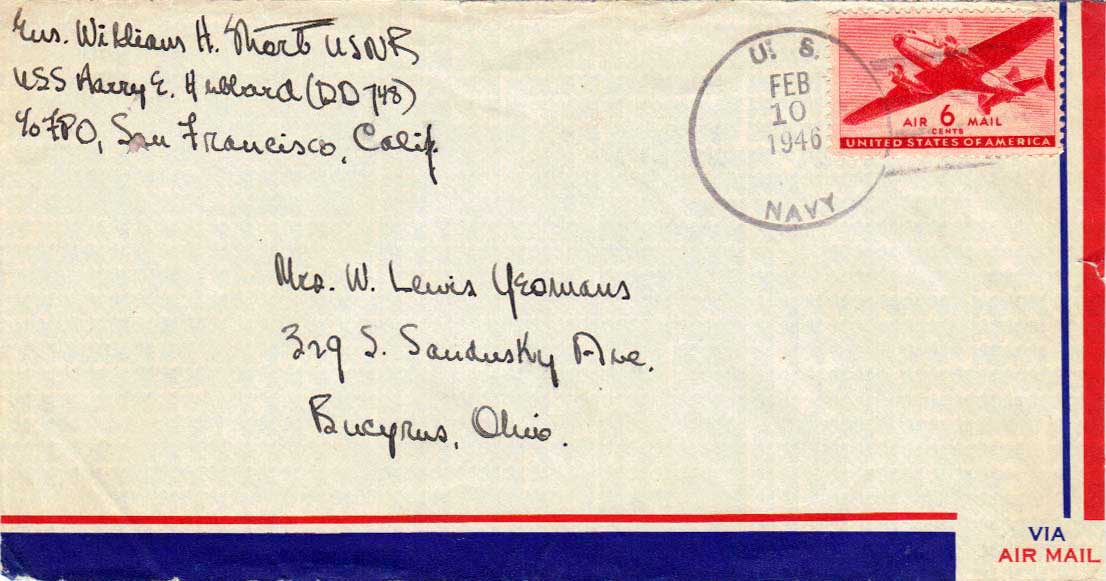 Ens. William H. Mort USNR
USS Harry E. Hubbard (DD 748)
c/o FPO, San Francisco, Calif.
U. S.
FEB
10
1946
NAVY
AIR 6 MAIL
CENTS
UNITED STATES OF AMERICA
Mrs. W. Lewis Yeomans
329 S. Sandusky Ave.
Bucyrus, Ohio.
VIA
AIR MAIL